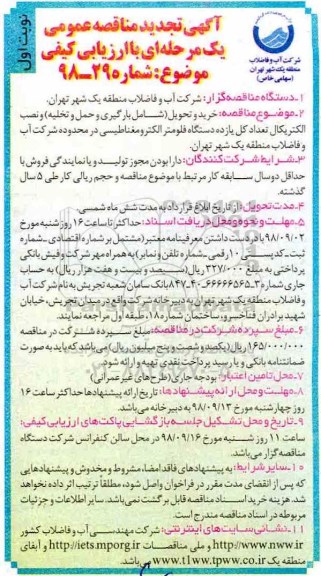 نوبت اول
آگهی تجدید مناقصه عمومی
یک مرحله‌ای با ارزیابی کیفی
موضوع: شماره ۲۹-۹۸
شرکت آب و فاضلاب
منطقه یک شهر تهران
(سهامی خاص)
۱-دستگاه مناقصه‌گزار: شرکت آب و فاضلاب منطقه یک شهر تهران.
۲-موضوع مناقصه: خرید و تحویل (شامل بارگیری و حمل و تخلیه) و نصب
الکتریکال تعداد کل یازده دستگاه فلومتر الکترومغناطیسی در محدوده شرکت آب
و فاضلاب منطقه یک شهر تهران.
۳-شرایط شرکت‌کنندگان: دارا بودن مجوز تولید و یا نمایندگی فروش با
حداقل دو سال سابقه کار مرتبط با موضوع مناقصه و حجم ریالی کار طی ۵ سال
گذشته.
۴-مدت تحویل: از تاریخ ابلاغ قرارداد به مدت شش ماه شمسی.
۵-مهلت و نحوه و محل دریافت اسناد: حداکثر تا ساعت ۱۶ روز شنبه مورخ
۹۸/۰۹/۰۲ با در دست داشتن معرفینامه معتبر (مشتمل بر شماره اقتصادی ـ شماره
ثبت ـ کدپستی ۱۰ رقمی ـ شماره تلفن و نمابر) به همراه مهر شرکت و فیش بانکی
پرداختی به مبلغ ۳۲۷/۰۰۰ ریال (سیصد و بیست و هفت هزار ریال) به حساب
جاری شماره ۳-۶۶۶۶۶۵۶۳-۴۰-۸۴۷ بانک سامان شعبه تجریش به نام شرکت آب
و فاضلاب منطقه یک شهر تهران به دبیرخانه شرکت واقع در میدان تجریش، خیابان
شهید برادران فناخسرو، ساختمان شماره ۱۸، طبقه اول مراجعه نمایند.
۶-مبلغ سپرده شرکت در مناقصه: مبلغ سپرده شرکت در مناقصه
۱۶۵/۰۰۰/۰۰۰ ریال (یکصد و شصت و پنج میلیون ریال) می‌باشد که باید به صورت
ضمانتنامه بانکی و یا رسید پرداخت نقدی تهیه و ارائه شود.
۷-محل تامین اعتبار: بودجه جاری (طرح‌های غیرعمرانی)
۸-مهلت و محل ارائه پیشنهادها: تاریخ ارائه پیشنهادها حداکثر ساعت ۱۶
روز چهارشنبه مورخ ۹۸/۰۹/۱۳ به دبیرخانه می‌باشد.
۹-تاریخ و محل تشکیل جلسه بازگشایی پاکت‌های ارزیابی کیفی:
ساعت ۱۱ روز شنبه مورخ ۹۸/۰۹/۱۶ در محل سالن کنفرانس شرکت دستگاه
مناقصه گزار می‌باشد.
۱۰-سایر شرایط: به پیشنهادهای فاقد امضاء، مشروط و مخدوش و پیشنهادهایی
که پس از انقضای مدت مقرر در فراخوان واصل شود، مطلقاً ترتیب اثر داده نخواهد
شد. هزینه خرید اسناد مناقصه قابل برگشت نمی‌باشد. سایر اطلاعات و جزئیات
مربوطه در اسناد مناقصه مندرج است.
۱۱-نشانی سایت‌های اینترنتی: شرکت مهندسی آب و فاضلاب کشور
http://www.nww.ir و ملی مناقصات http://iets.mporg.ir و آبفای
منطقه یک www.t1ww.tpww.co.ir می‌باشد.